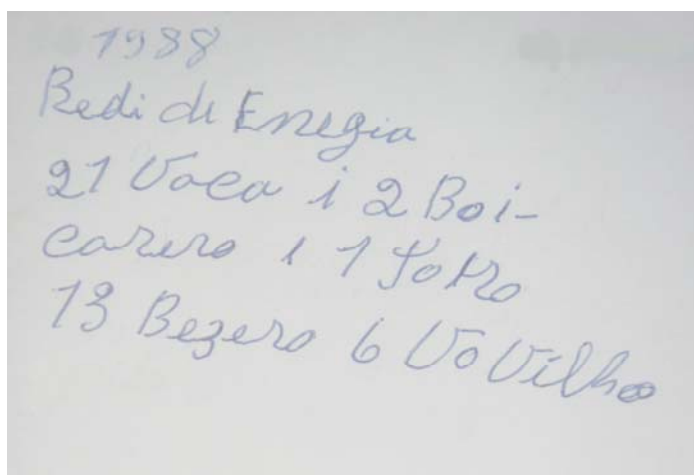 1988
Redi de Enegia
21 Vaca i 2 Boi-
carero i 1 Potro
13 Bezero 6 Vo Vilho